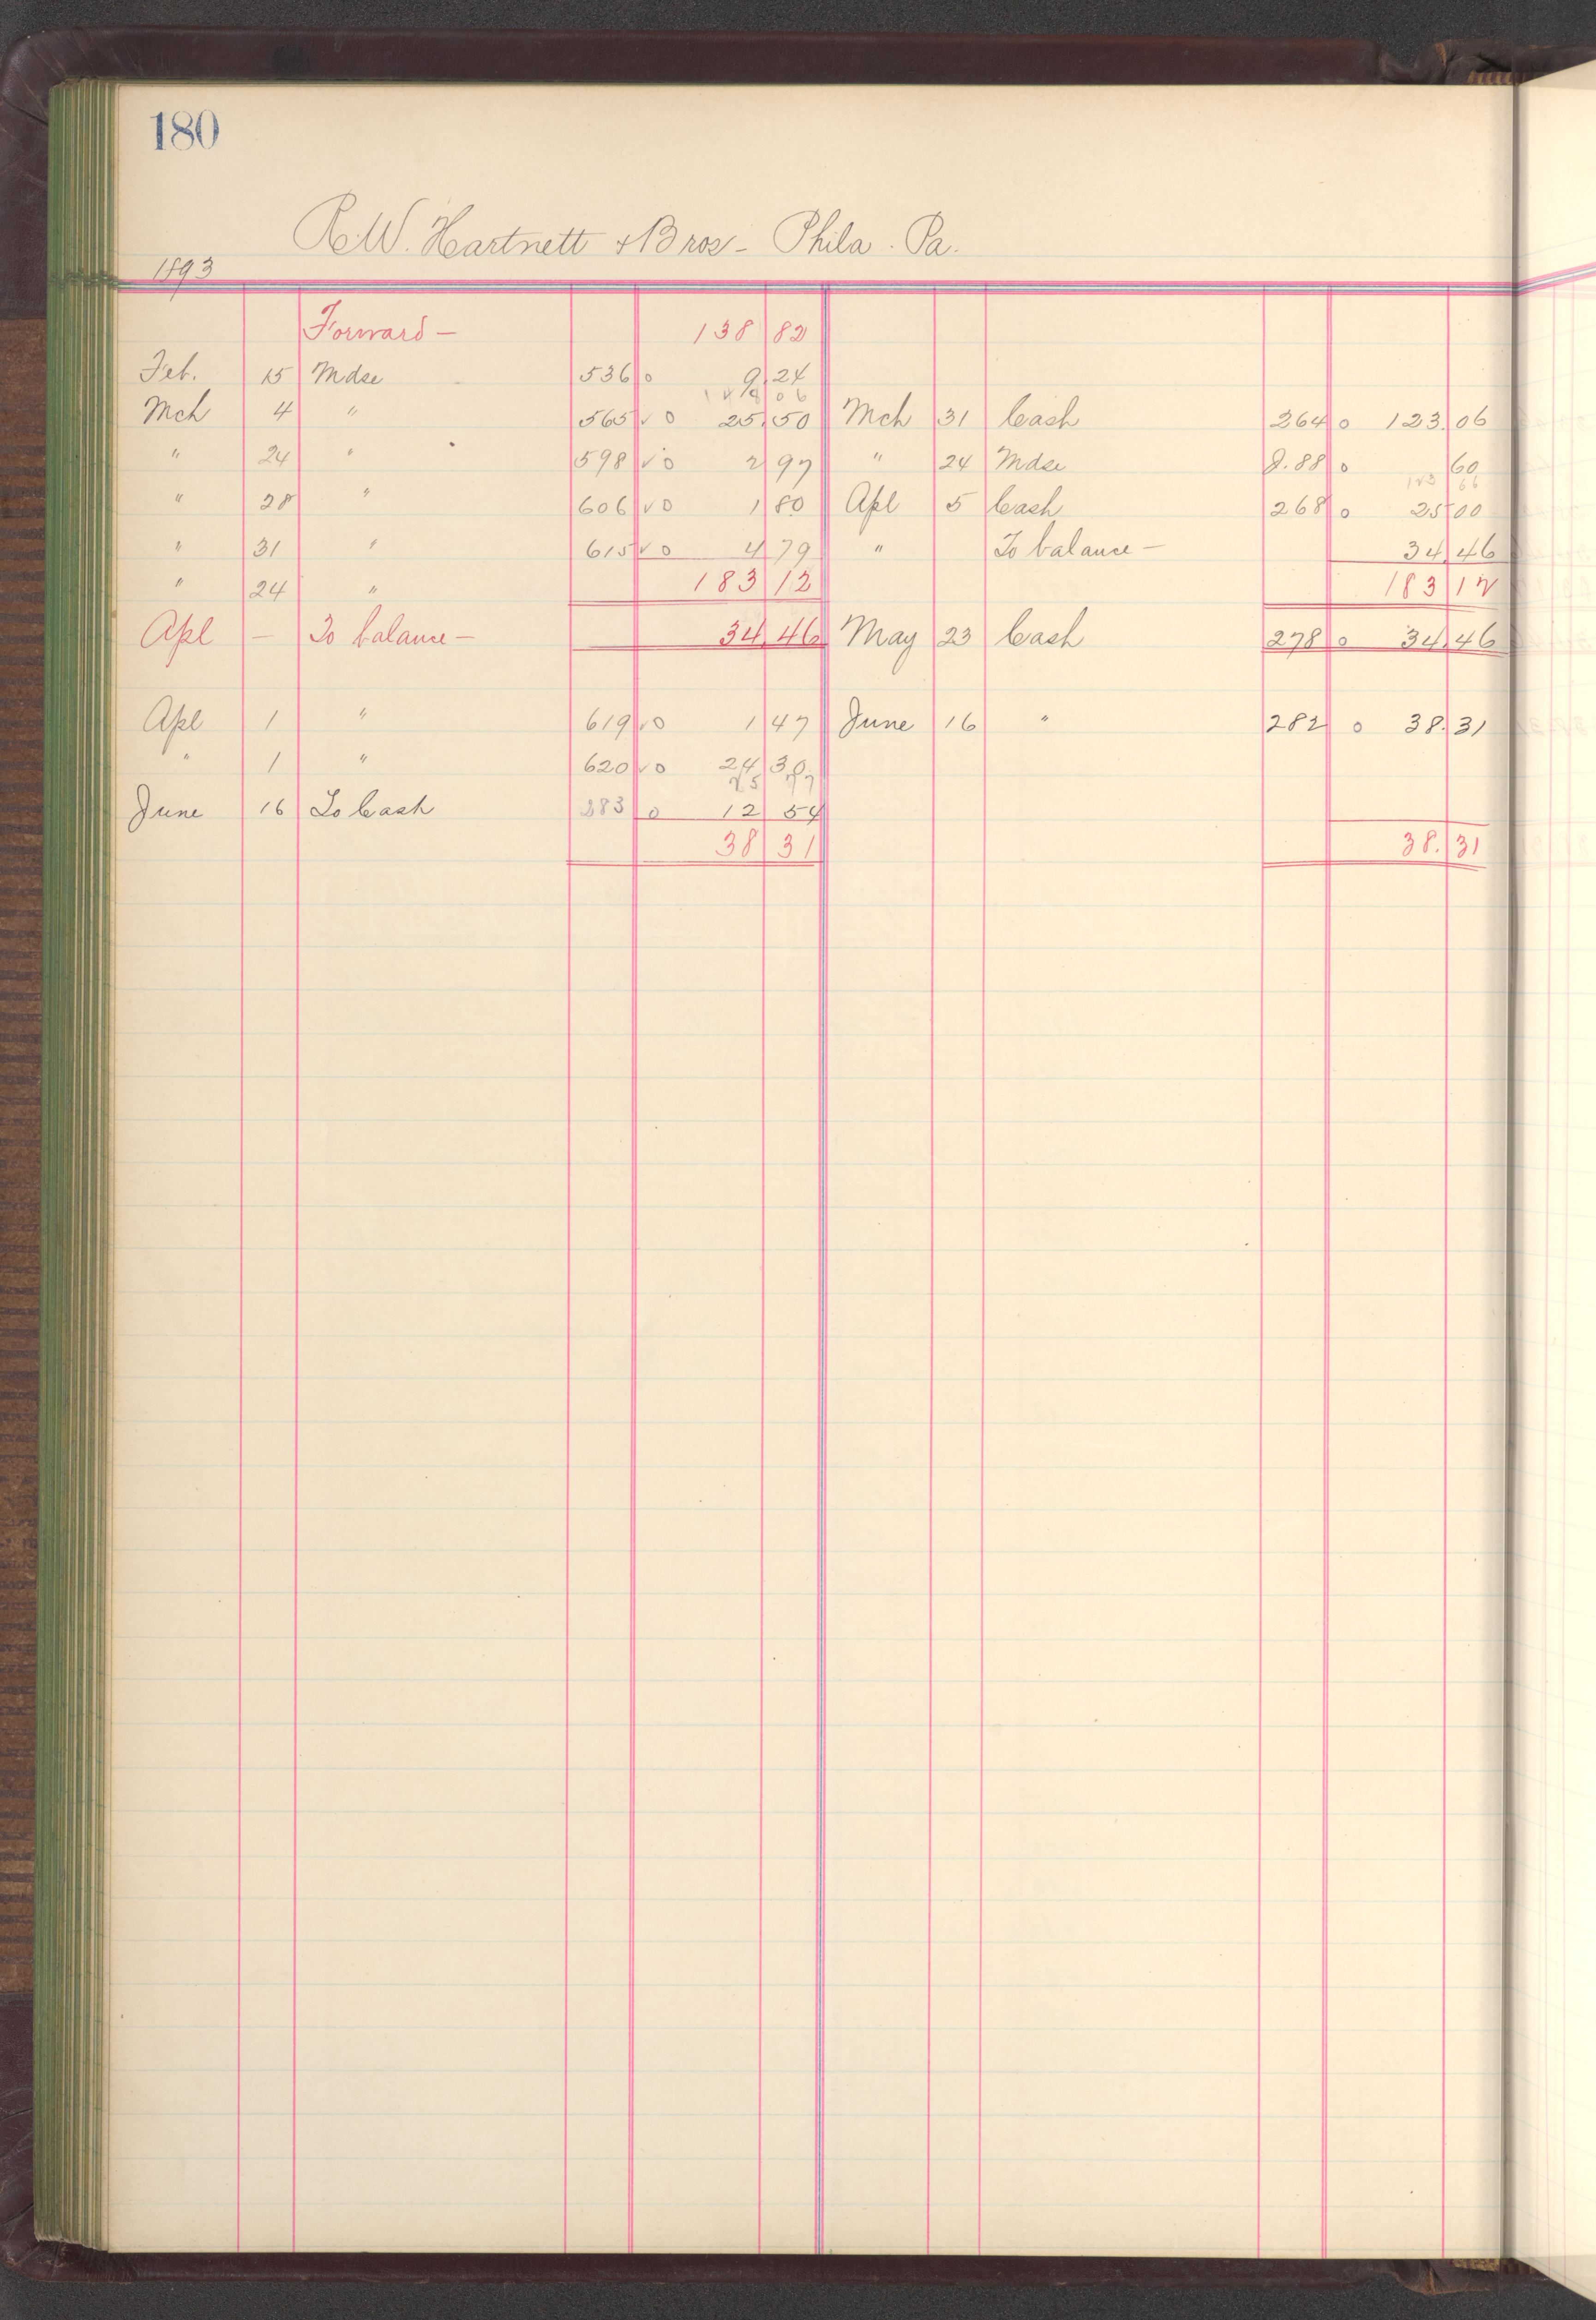 180
R.W. Hartnett & Bros - Phila. Pa.
1893
Forward - 138 82
Feb. 15 Mdse 536 o 9 24
148 06
Mch 4 " 565 ✓ o 25 50 Mch 31 Cash 264 o 123.06
" 24 " 598 ✓ o 2 97 " 24 Mdse J.88 o 60
123 66
" 28 " 606 ✓ o 1 80 Apl 5 Cash 268 o 25 00
" 31 " 615 ✓ o 4 79 " To balance - 34.46
" 24 " 183 12 183 12
Apl - To balance - 34.46 May 23 Cash 278 o 34.46
Apl 1 " 619 ✓ o 1 47 June 16 " 282 o 38.31
" 1 " 620 ✓ o 24 30
25 77
June 16 To Cash 283 o 12 54
38 31 38.31